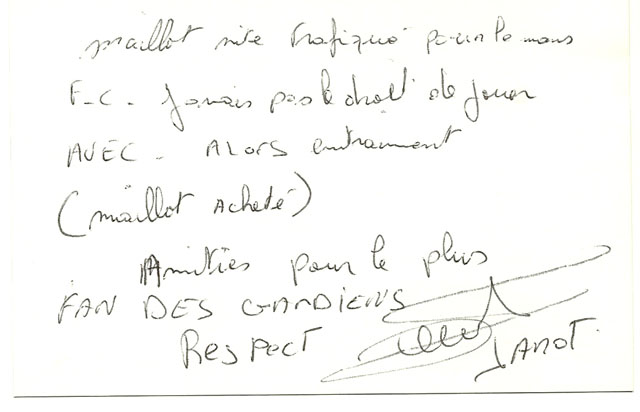 maillot nike trafiqué pour le mans
F-C. Jamais pas le droit de jouer
AVEC. ALORS entrainment
(maillot acheté)
Amitiés pour le plus
FAN DES GARDIENS
Respect JANOT